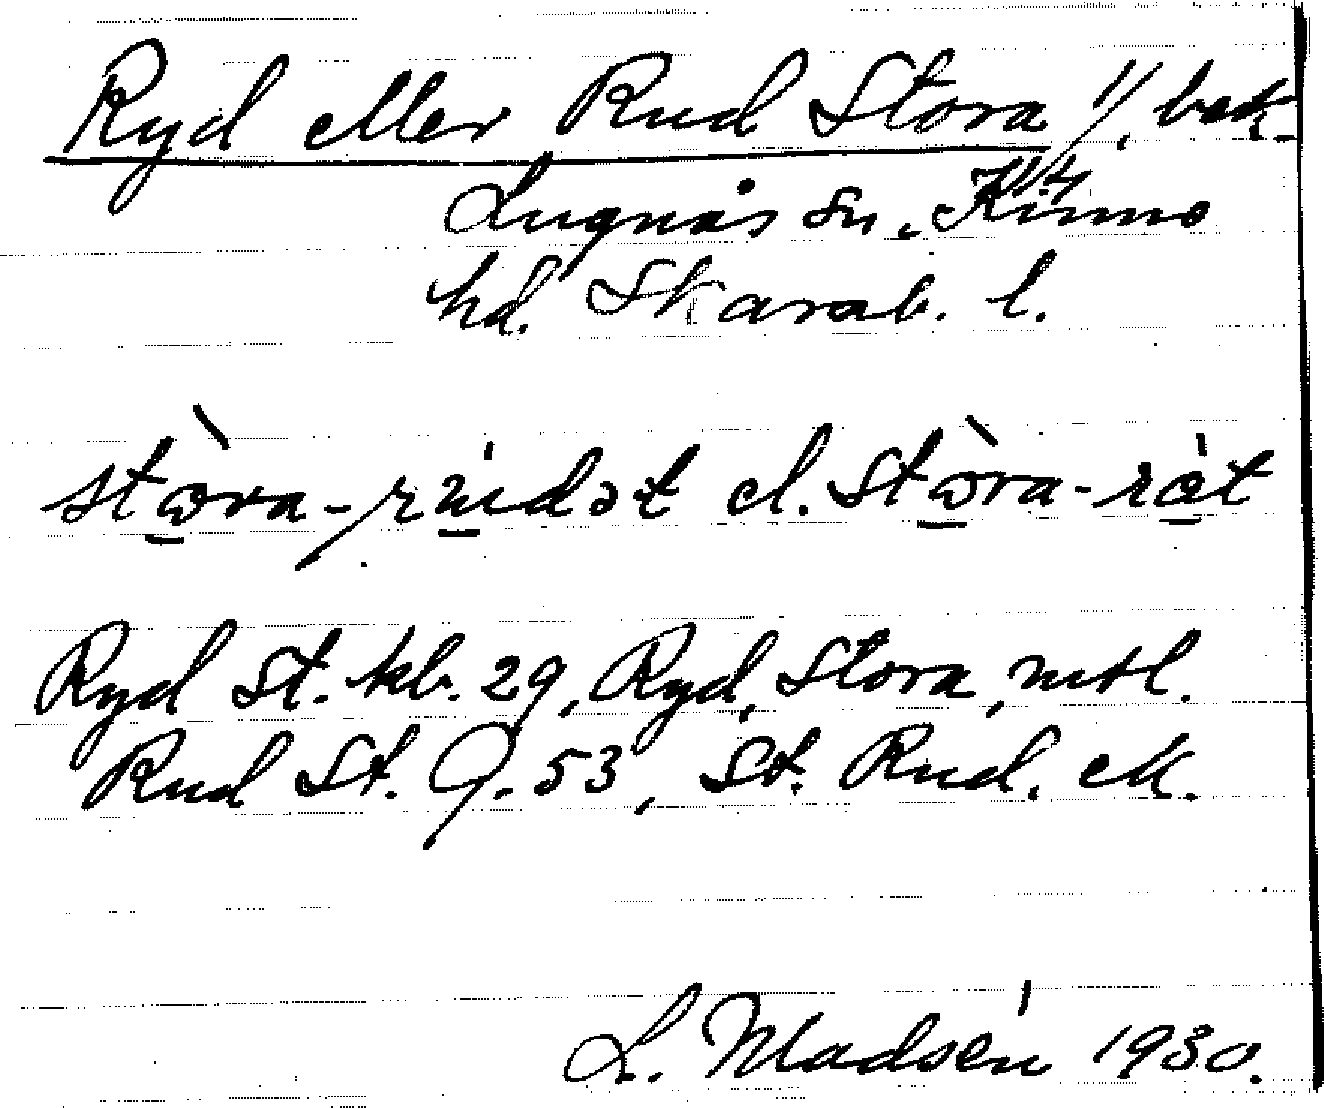 Ryd eller Rud Stora 1/1, bek.
Lugnås sn. Kinne
hd. Skarab. l.
stòra-rúdət el. stòra-rét
Ryd St. kb. 29, Ryd, Stora, mtl.
Rud St. J. 53, St. Rud. ek.
L. Madsén 1930.